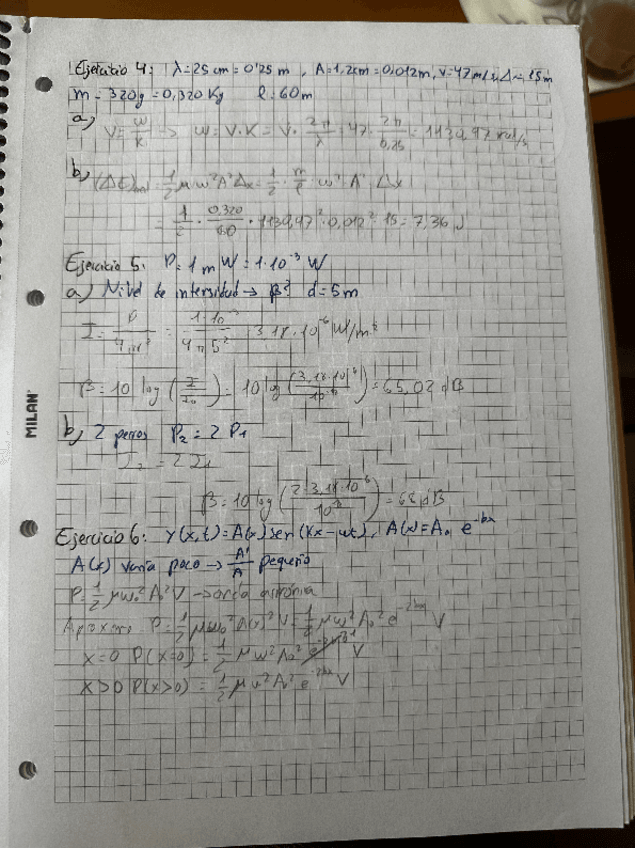 Ejercicio 4: λ=25 cm = 0'25 m, A=1,2cm = 0,012m, V=47 m/s, Δx = 15m
m = 320g = 0,320 Kg l = 60m
a) V = w/k → w = V·K = V · 2π/λ = 47 · 2π/0,25 = 1130,97 rad/s
b) (ΔE) = 1/2 μ w² A² Δx = 1/2 · m/l · w² · A² · Δx
= 1/2 · 0,320/60 · 1130,47² · 0,012² · 15 = 7,36 J
Ejercicio 5: P = 1 mW = 1·10⁻³ W
a) Nivel de intensidad → β? d=5m
I = P/4πr² = 1·10⁻³/4π5² = 3,18·10⁻⁶ W/m²
β = 10 log (I/I₀) = 10 log (3,18·10⁻⁶/) = 65,02 dB
b) 2 perros P₂ = 2 P₁
I₂ = 2 I₁
β = 10 log (2·3,18·10⁻⁶/) = 68 dB
Ejercicio 6: Y(x,t) = A(x) sen (Kx - wt), A(x) = A₀ e^-bx
A(x) varía poco → A'/A pequeño
P = 1/2 μ w² A² V → onda armónica
Aproximo P = 1/2 μ w² A(x)² V = 1/2 μ w² A₀² e^-2bx V
x=0 P(x=0) = 1/2 μ w² A₀² V
x>0 P(x>0) = 1/2 μ w² A₀² e^-2bx V
MILAN